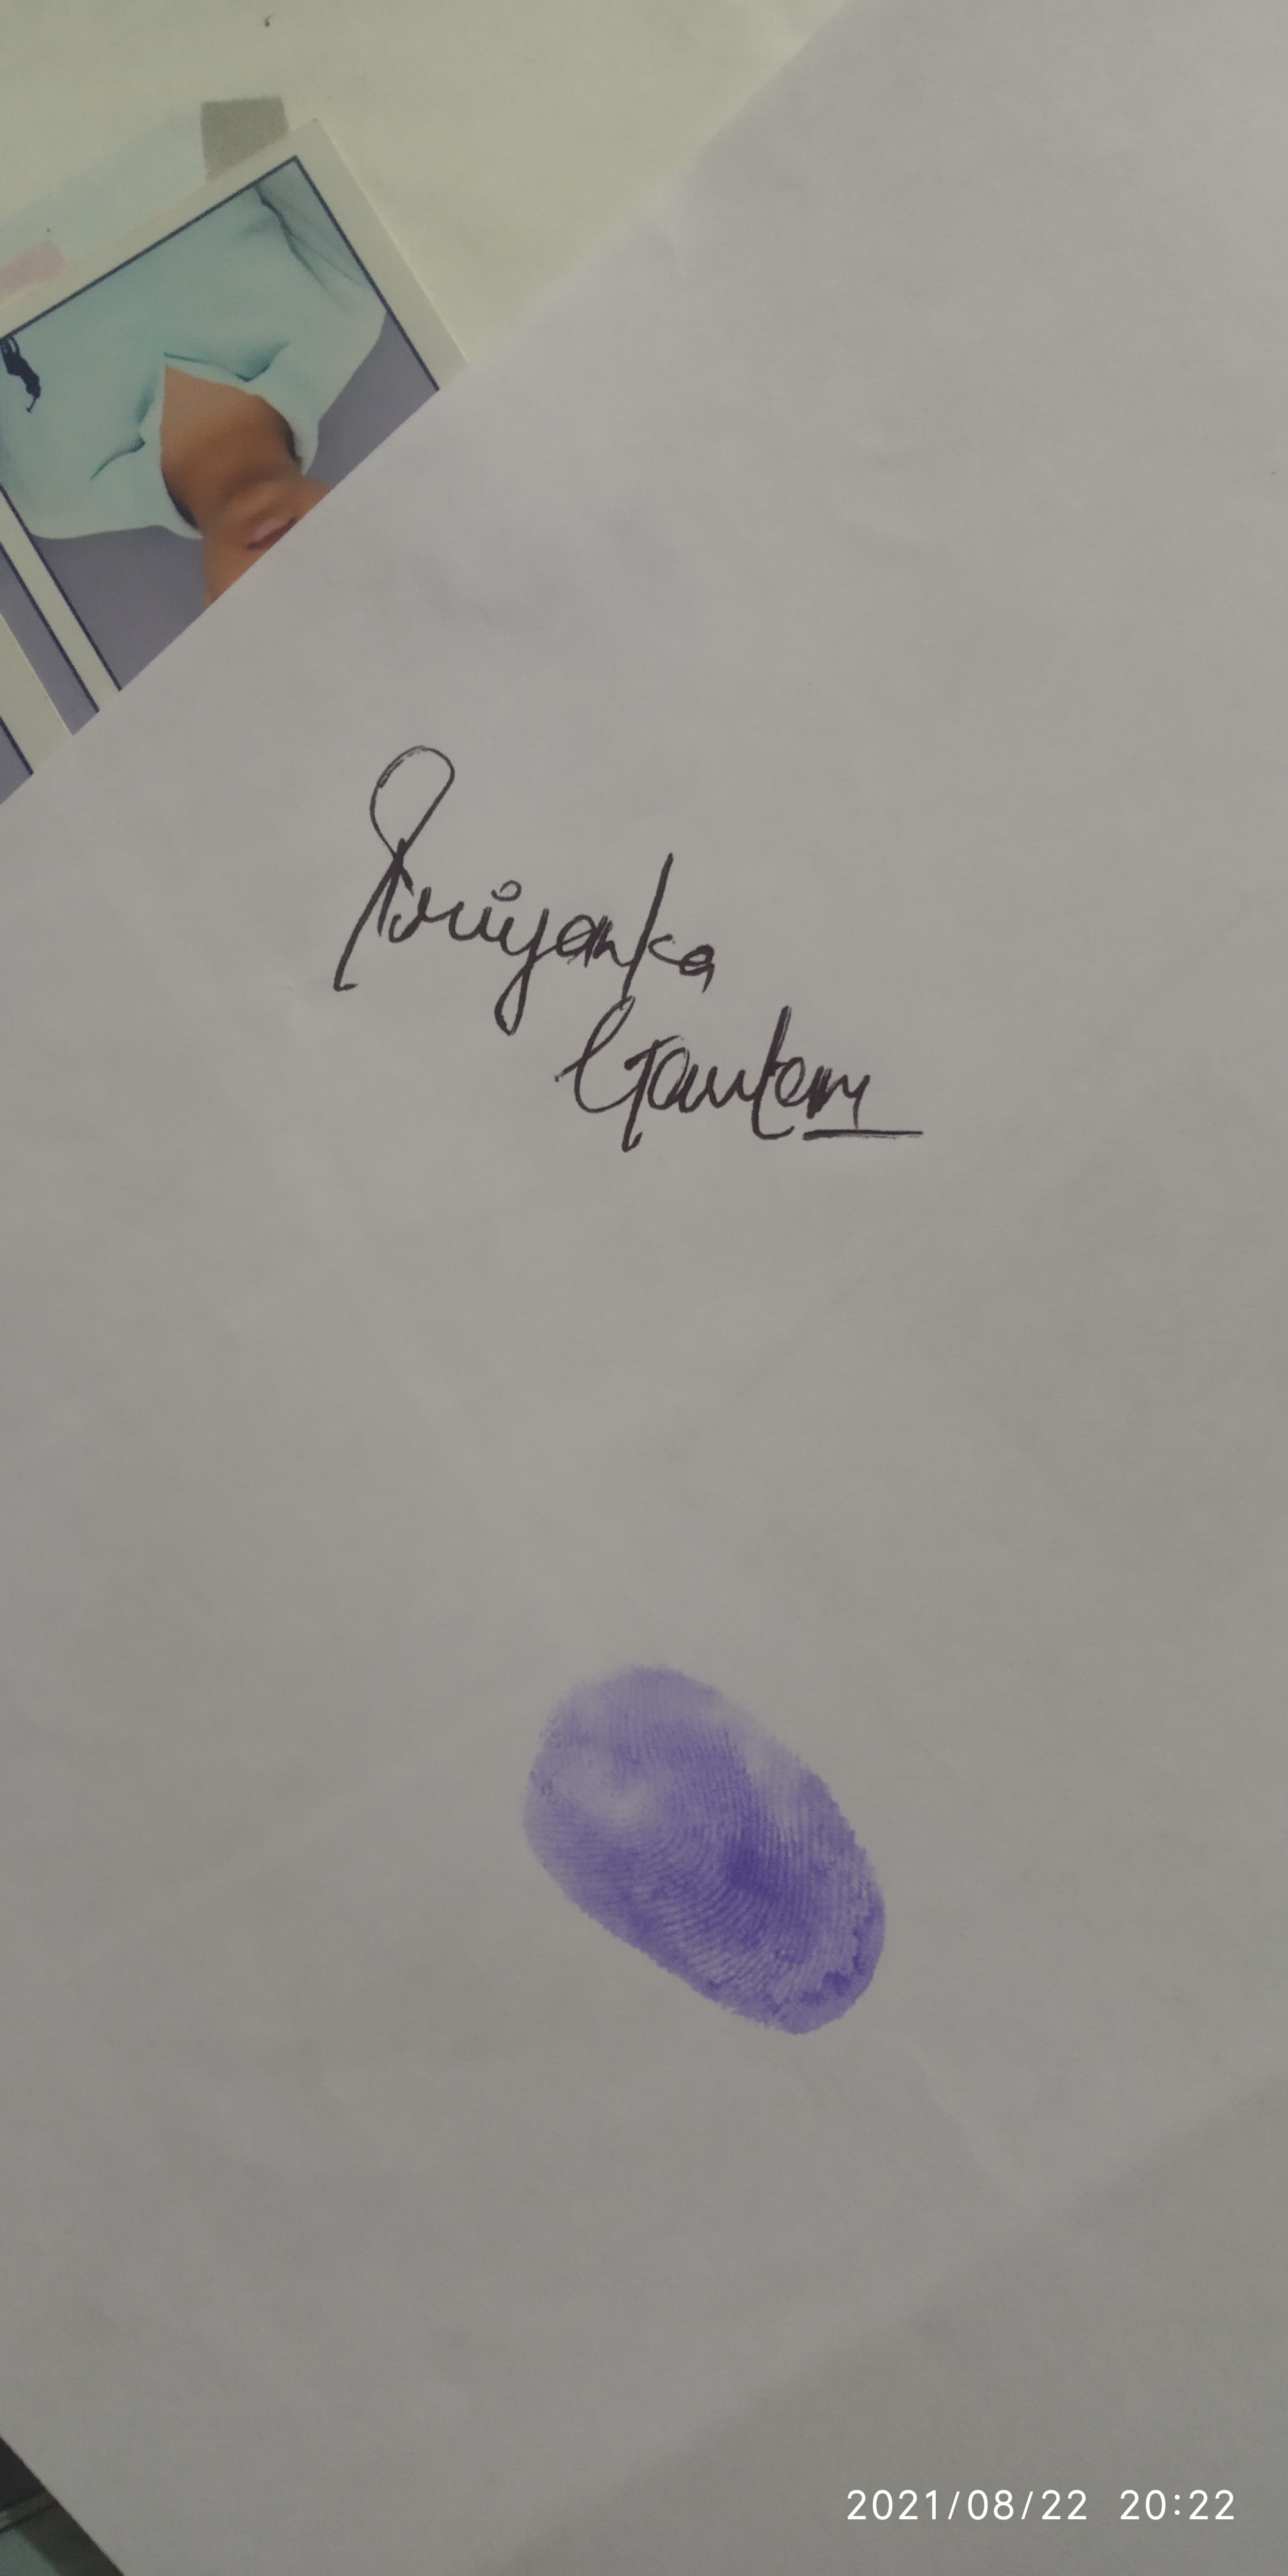 Priyanka
Gautam
2021/08/22 20:22